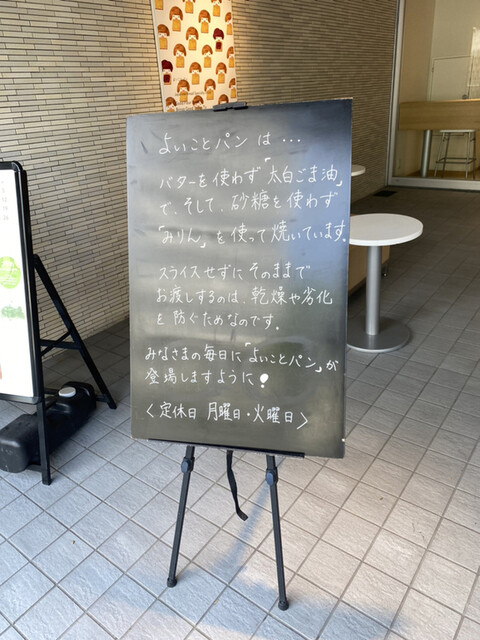 よいことパンは…
バターを使わず「太白ごま油」
で、そして、砂糖を使わず
「みりん」を使って焼いています。
スライスせずにそのままで
お渡しするのは、乾燥や劣化
を防ぐためなのです。
みなさまの毎日に「よいことパン」が
登場しますように!
〈定休日 月曜日・火曜日〉